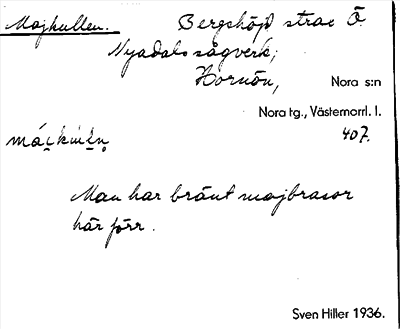 Majkullen. Bergshöjd strax Ö
Nyadals sågverk;
Hornön, Nora s:n
Nora tg., Västernorrl. l.
407.
Man har bränt majbrasor
här förr.
Sven Hiller 1936.